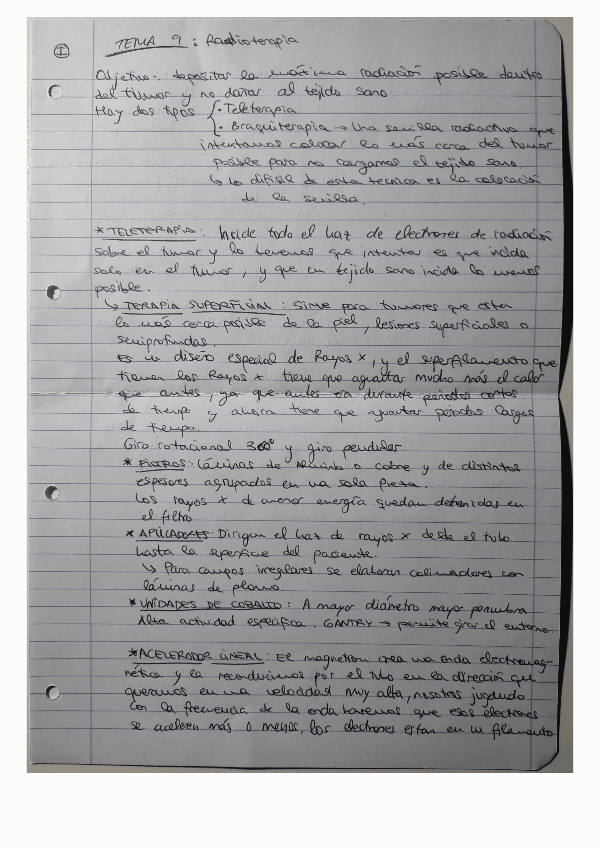 I
TEMA 9: Radioterapia
Objetivo: depositar la máxima radiación posible dentro
del tumor y no dañar al tejido sano
Hay dos tipos { · Teleterapia
· Braquiterapia → Una semilla radiactiva que
intentamos colocar lo más cerca del tumor
posible para no cargarnos el tejido sano.
↳ Lo difícil de esta tecnica es la colocación
de la semilla.
* TELETERAPIA: Incide todo el haz de electrones de radiación
sobre el tumor y lo tenemos que intentar es que incida
solo en el tumor, y que en tejido sano incida lo menos
posible.
↳ TERAPIA SUPERFICIAL: Sirve para tumores que esten
lo más cerca posible de la piel, lesiones superficiales o
semiprofundas.
Es un diseño especial de Rayos X, y el superfilamento que
tienen los Rayos X tiene que aguantar mucho más el calor
que antes, ya que antes era durante periodos cortos
de tiempo y ahora tiene que aguantar periodos largos
de tiempo.
Giro rotacional 360º y giro pendular
* FILTROS: Láminas de aluminio o cobre y de distintos
espesores agrupados en una sola pieza.
Los rayos X de menor energía quedan detenidas en
el filtro
* APLICADORES: Dirigen el haz de rayos X desde el tubo
hasta la superficie del paciente.
↳ Para campos irregulares se elaboran colimadores con
láminas de plomo.
* UNIDADES DE COBALTO: A mayor diámetro mayor penumbra
Alta actividad específica. GANTRY → permite girar el entorno.
* ACELERADOR LINEAL: El magnetron crea una onda electromag-
nética y la reconducimos por el tubo en la dirección que
queramos en una velocidad muy alta, nosotros jugando
con la frecuencia de la onda haremos que esos electrones
se aceleren más o menos, los electrones estan en un filamento